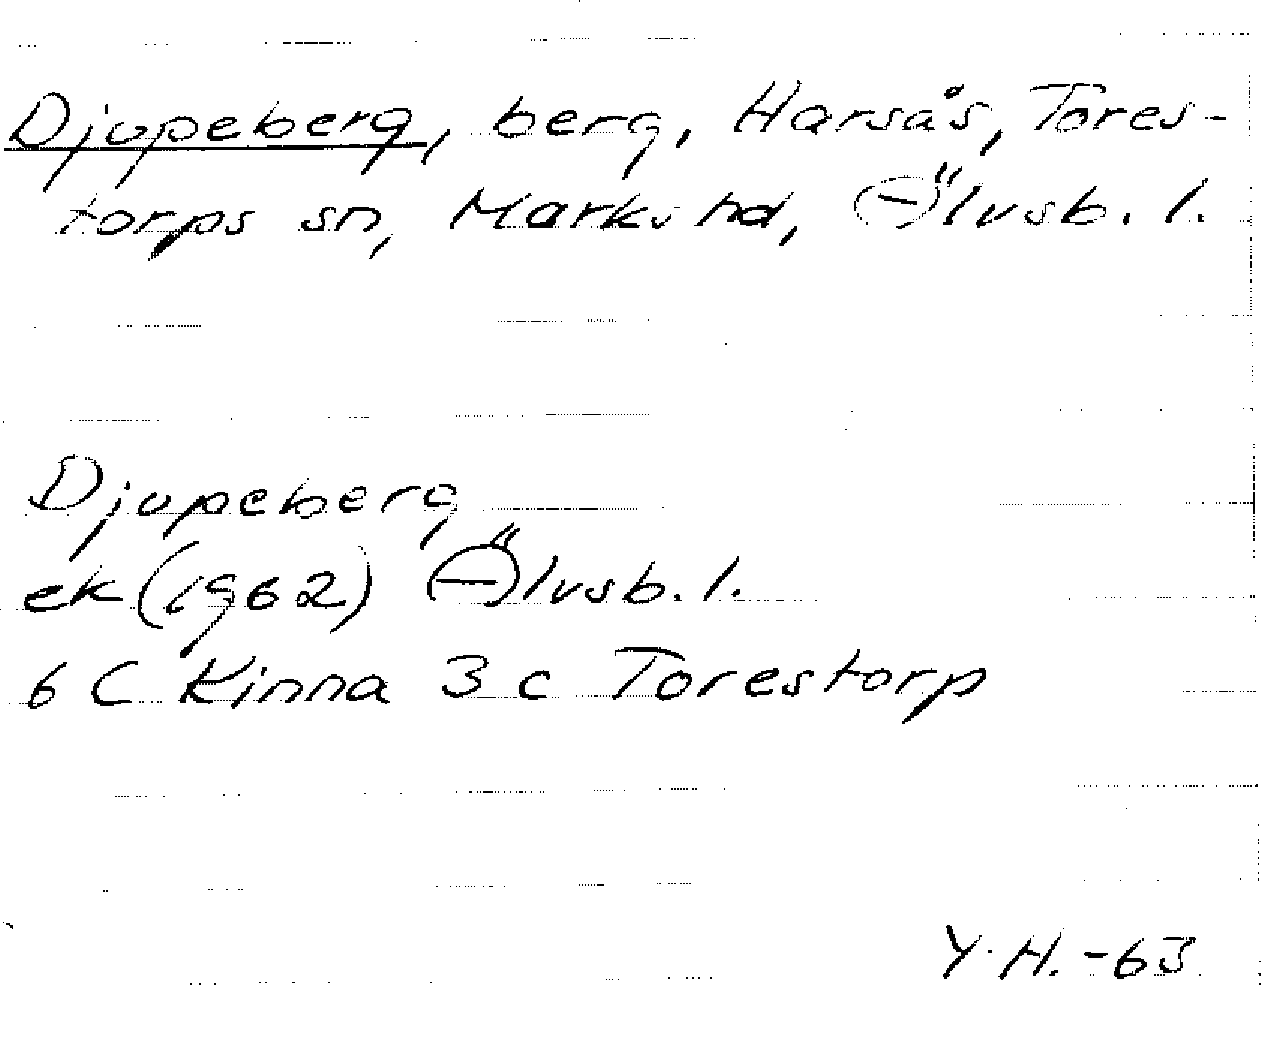 Djupeberg, berg, Harsås, Tores-
torps sn, Marks hd, Älvsb. l.
Djupeberg
ek (1962) Älvsb. l.
6 C Kinna 3 c Torestorp
Y. H. -63